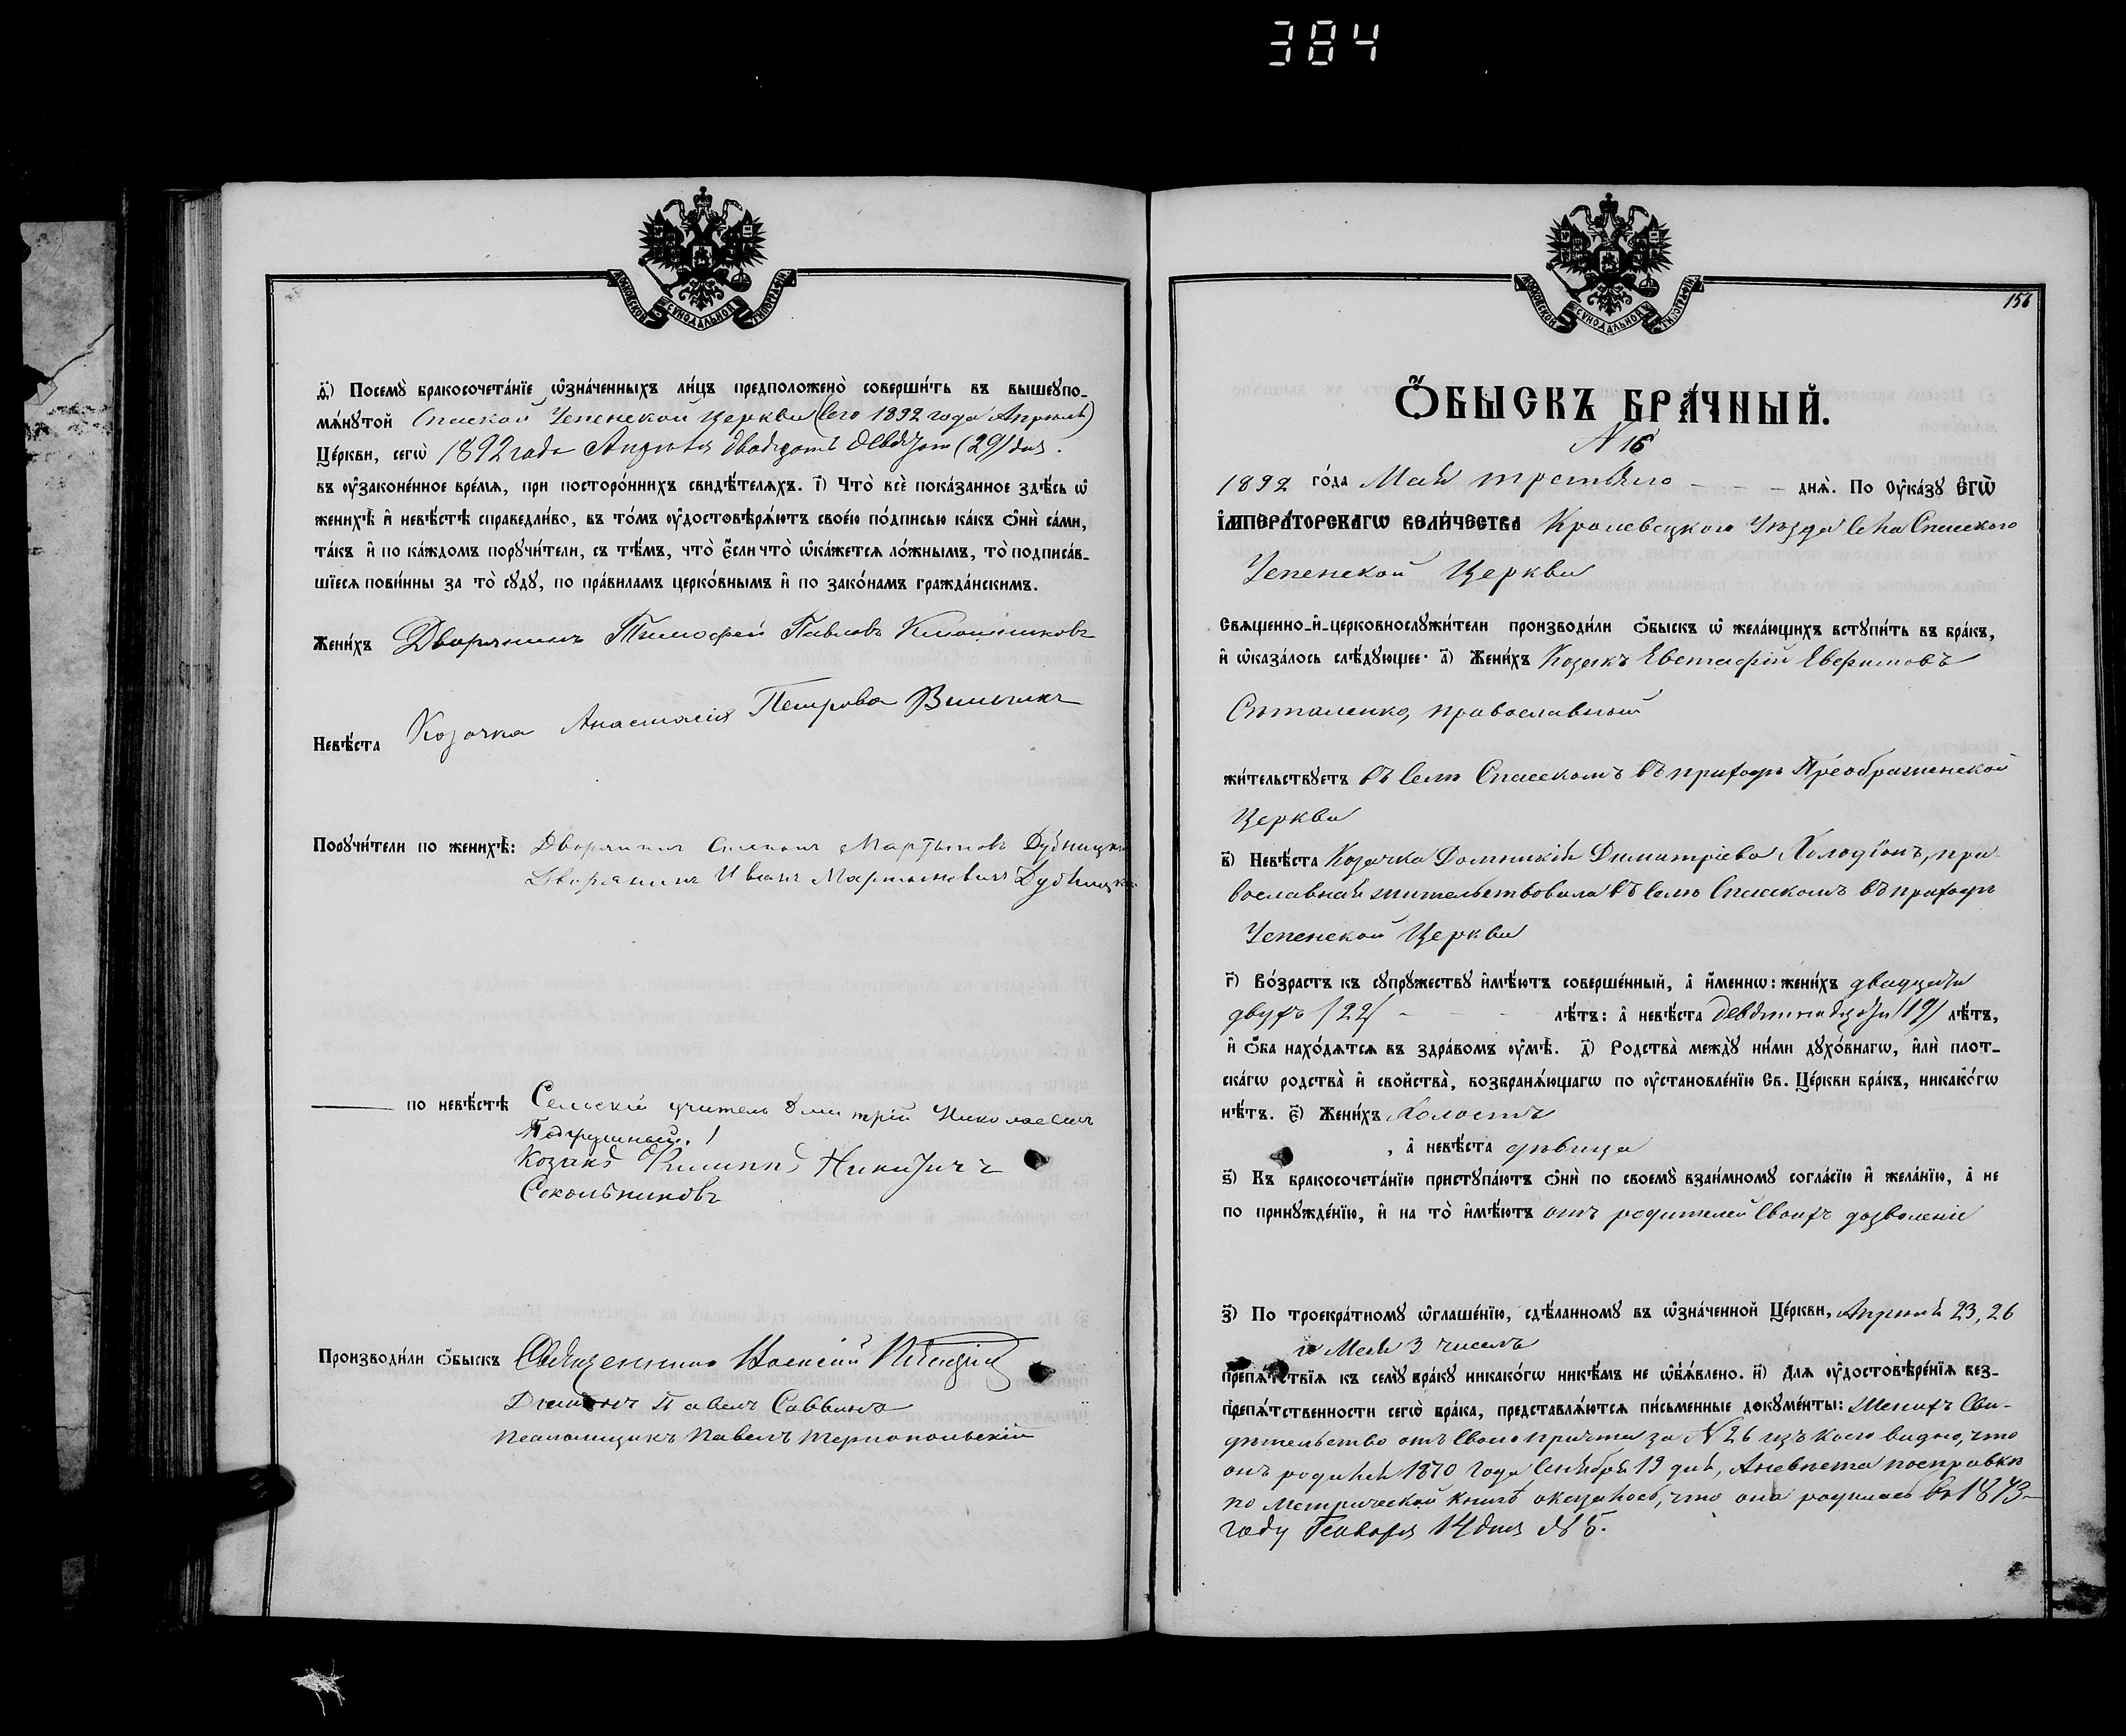 384
МОСКОВСКОЙ СѴНОДАЛЬНОЙ ТѴПОГРАФІИ
д҃і) Посемꙋ̀ бракосочета́нїе ѡ҆зна́ченныхъ ли́цъ предположено̀ соверши́ть въ вышеꙋпо-
мѧ́нꙋтой Спаской Успенской Церкви (Сего 1892 года Апрѣля)
Це́ркви, сегѡ̀ 1892 года Апрѣля двадцать девятого (29) дня.
въ ᲂу҆зако́ненное вре́мѧ, при посторо́ннихъ свидѣ́телѧхъ. і҃) Что̀ всѐ пока́занное здѣ́сь ѡ҆
женихѣ̀ и҆ невѣ́стѣ справедли́во, въ то́мъ ᲂу҆достовѣрѧ́ютъ свое́ю по́дписью ка́къ ѻ҆нѝ са́ми,
та́къ и҆ по ка́ждомъ порꙋчи́тели, съ тѣ́мъ, что̀ є҆́сли что̀ ѡ҆ка́жетсѧ ло́жнымъ, то̀ подписа́в-
шїесѧ пови́нны за то̀ сꙋдꙋ̀, по пра́виламъ церко́внымъ и҆ по зако́намъ гражда́нскимъ.
Жени́хъ Дворянинъ Тимофей Павловъ
Невѣ́ста Козачка Анастасія Петрова
Порꙋчи́тели по женихѣ̀: Дворянинъ Степанъ Мартыновъ Дубницкій
Дворянинъ Иванъ Мартыновичъ Дубницкій
по невѣ́стѣ Сельскій учитель Дмитрій Николаевич
Козакъ Филиппъ Никитичъ
Сокольниковъ
Производи́ли ѻ҆́быскъ Священникъ Алексій
Діаконъ Павелъ Саввинъ
Псаломщикъ Павелъ Тернопольскій
МОСКОВСКОЙ СѴНОДАЛЬНОЙ ТѴПОГРАФІИ
156
Ѻ҆́БЫСКЪ БРА́ЧНЫЙ.
N 16
1892 го́да Мая третьяго - - - днѧ̀. По Оу҆ка́зꙋ Є҆гѡ̀
І҆МПЕРА́ТОРСКАГѠ ВЕЛИ́ЧЕСТВА Кролевецкого Уѣзда Села Спаского
Успенской Церкви
Свѧщенно-и҆-церковнослꙋжи́тели производи́ли ѻ҆́быскъ ѡ҆ жела́ющихъ встꙋпи́ть въ бра́къ,
и҆ ѡ҆каза́лось слѣ́дꙋющее: а҃) Жени́хъ Козакъ Евстафій Евфимовъ
православный
жи́тельствꙋетъ въ Селѣ Спасскомъ въ приходѣ Преображенской
Церкви
в҃) Невѣ́ста Козачка Домникія Димитріева Холодіонъ, пра-
вославная жительствовала въ Селѣ Спасскомъ въ приходѣ
Успенской Церкви
г҃) Во́зрастъ къ сꙋпрꙋ́жествꙋ и҆мѣ́ютъ соверше́нный, а҆ и҆́меннѡ: жени́хъ двадцати
двухъ /22/ - - - лѣ́тъ: а҆ невѣ́ста девятнадцати /19/ лѣ́тъ,
и҆ ѻ҆́ба нахо́дѧтсѧ въ здра́вомъ ᲂу҆мѣ̀. д҃) Родства̀ междꙋ̀ ни́ми дꙋхо́внагѡ, и҆лѝ плот-
ска́гѡ родства̀ и҆ сво́йства̀, возбранѧ́ющагѡ по ᲂу҆становле́нїю Св. Це́ркви бра́къ, никако́гѡ
нѣ́тъ. є҃) Жени́хъ холостъ
, а҆ невѣ́ста дѣвица
ѕ҃) Къ бракосочета́нїю пристꙋпа́ютъ ѻ҆нѝ по своемꙋ̀ взаи́мномꙋ согла́сїю и҆ жела́нїю, а҆ не
по принꙋжде́нїю, и҆ на то̀ и҆мѣ́ютъ отъ родителей своихъ дозволеніе
з҃) По троекра́тномꙋ ѡ҆глаше́нїю, сдѣ́ланномꙋ въ ѡ҆зна́ченной Це́ркви, Апрѣля 23, 26
и Мая 3 чиселъ
препѧ́тствїѧ къ семꙋ̀ бра́кꙋ никако́гѡ никѣ́мъ не ѡ҆бъѧ́влено. и҃) Длѧ ᲂу҆достовѣре́нїѧ без-
препѧ́тственности сегѡ̀ бра́ка, представлѧ́ютсѧ пи́сьменные докꙋме́нты: Женихъ Сви-
дѣтельство отъ своего причта за N 26 изъ коего видно, что
онъ родился 1870 года Сентября 19 дня, А невѣста по справкѣ
по метрической книгѣ оказалось, что она родилась въ 1873
году Генваря 14 дня № 5.